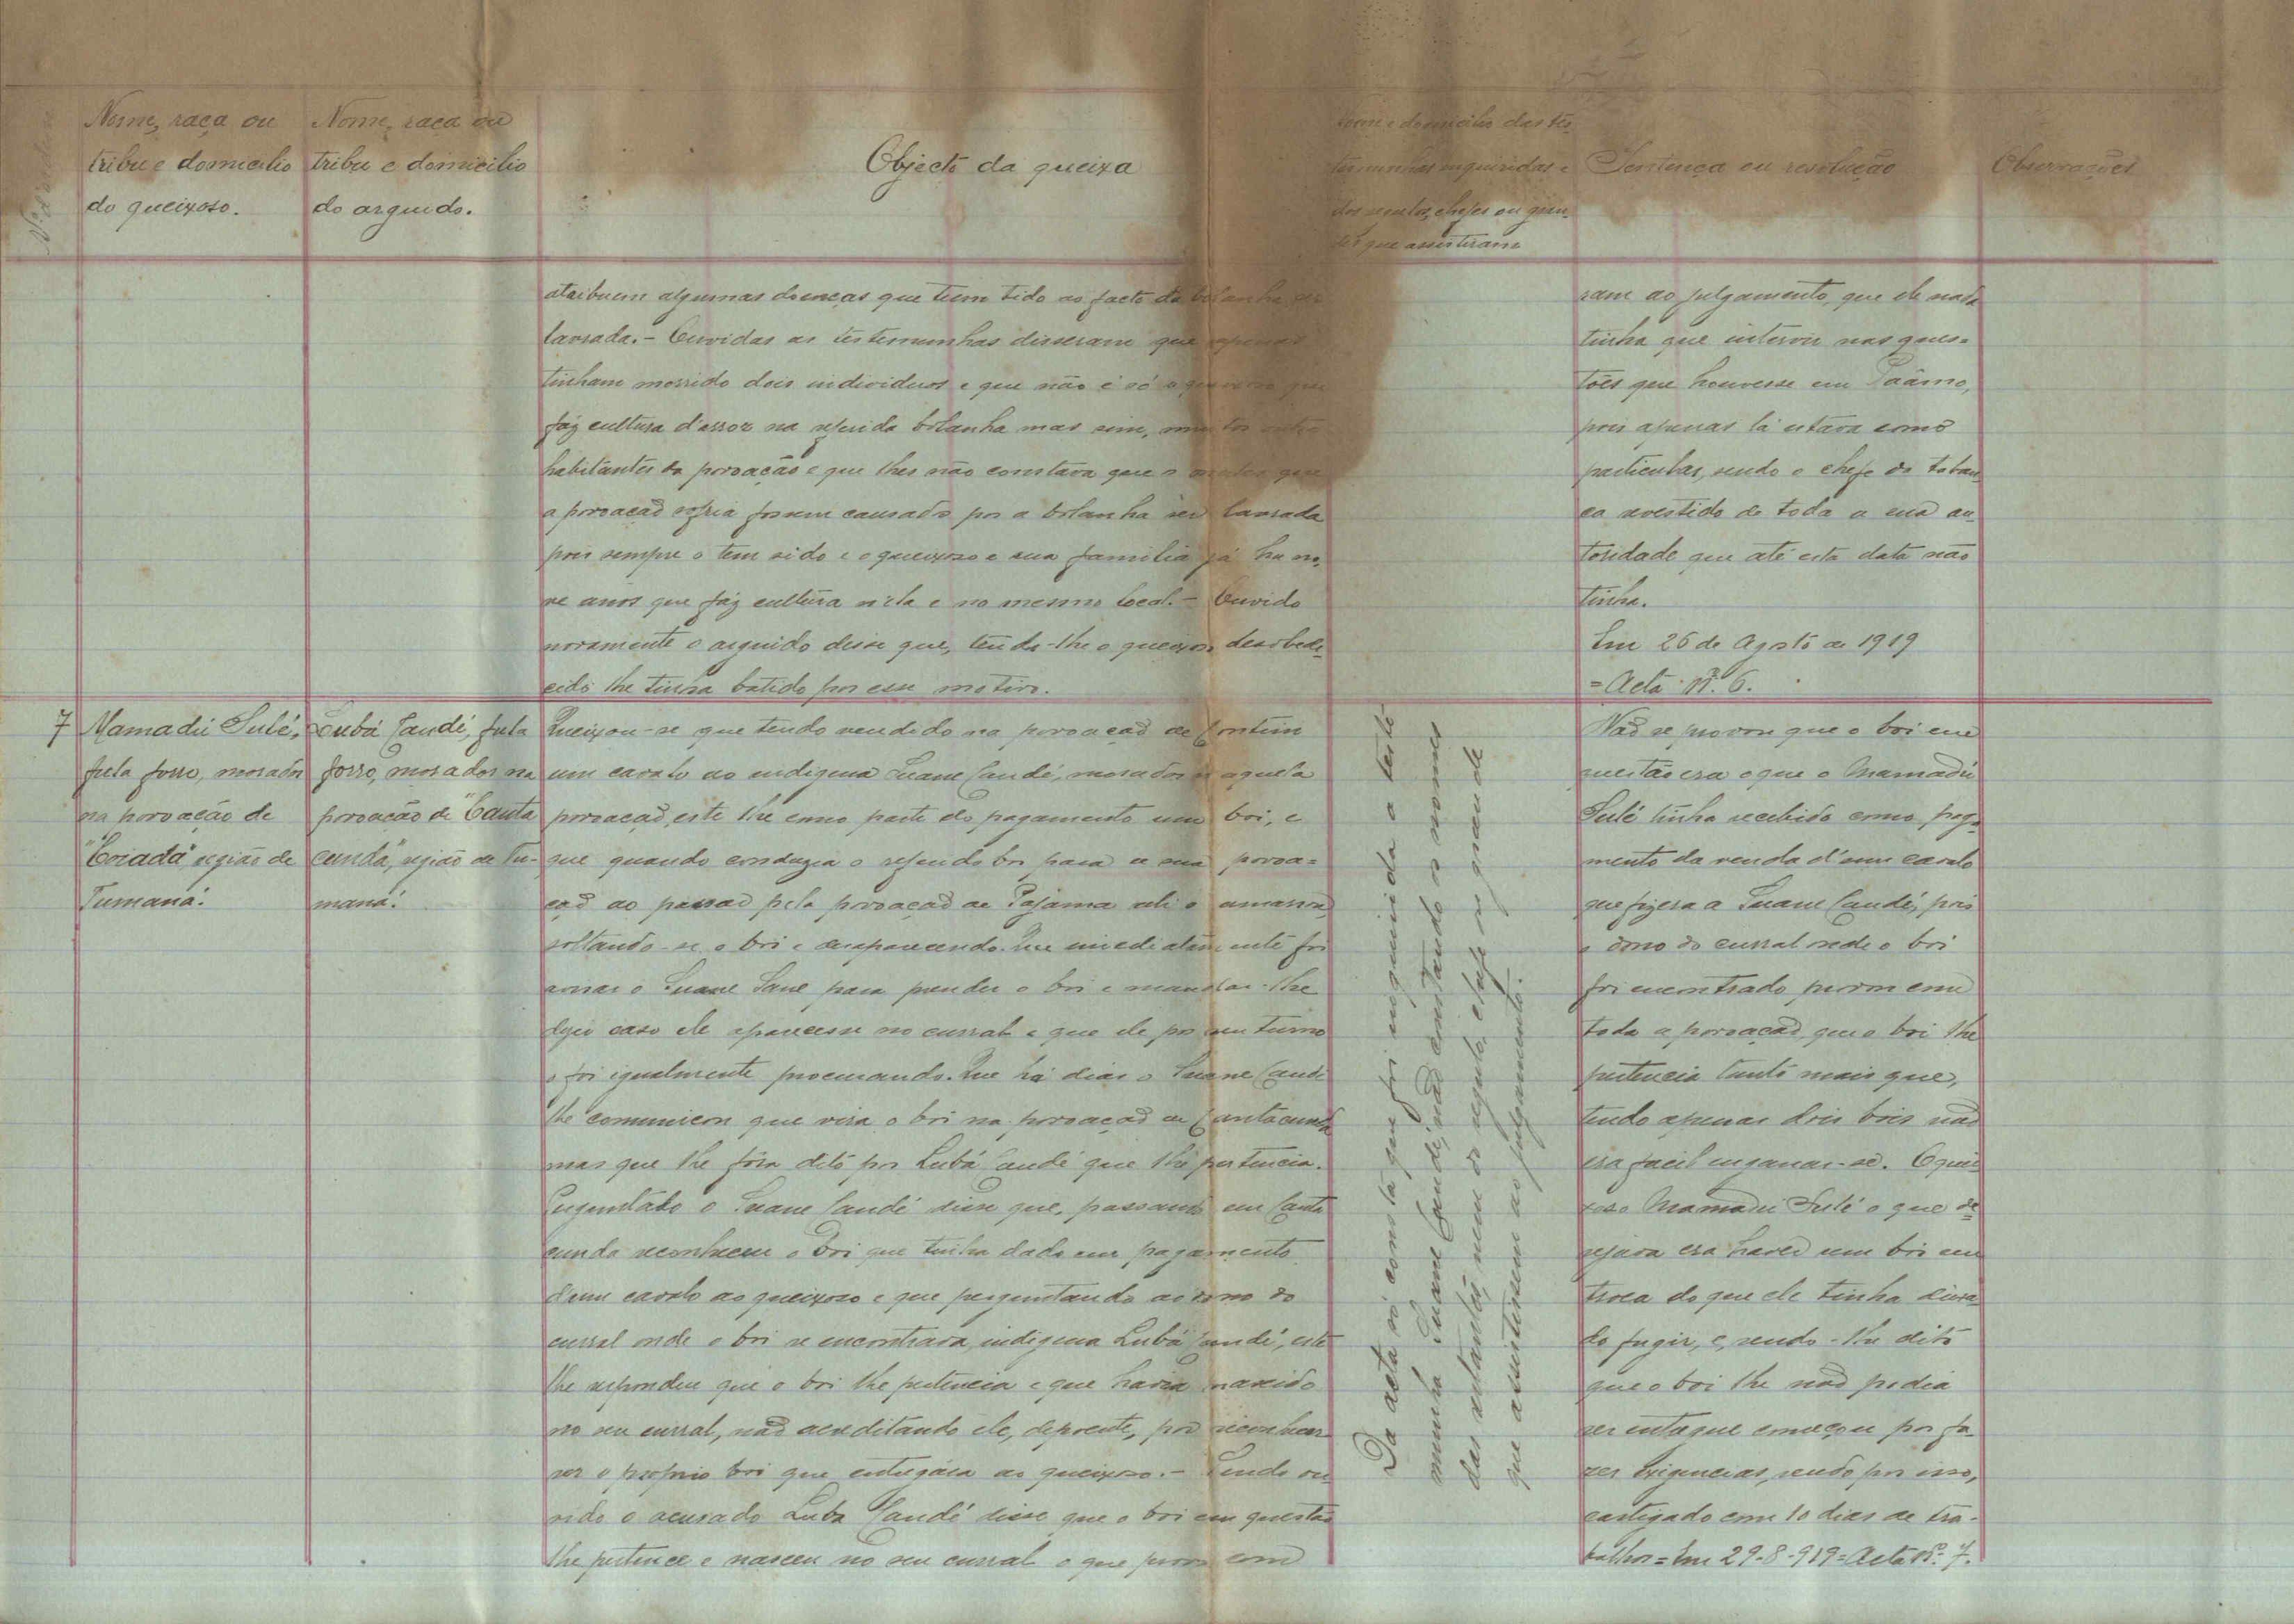 Nº d'ordem
Nome, raça ou
tribu e domicilio
do queixoso.
Nome, raça ou
tribu e domicilio
do arguido.
Objecto da queixa
Nome e domicilio das tes-
temunhas inquiridas e
dos vogaes, chefes ou gran-
des que assistiram
Sentença ou resolução
Observações
atribuem algumas doenças que teem tido ao facto da bolanha ser
lavrada.- Ouvidas as testemunhas disseram que apenas
tinham morrido dois individuos e que não é só o queixoso que
fáz cultura d'arroz na referida bolanha mas sim, muitos outros
habitantes da povoação e que lhes não constava que o
a povoação sofria fossem causado por a bolanha ser lavrada
pois sempre o tem sido e o queixoso e sua familia já ha no-
ve anos que fáz cultura n'ela e no mesmo local.- Ouvido
novamente o arguido disse que, tendo-lhe o queixoso desobede-
cido lhe tinha batido por esse motivo.
ram ao julgamento, que ele nada
tinha que intervir nas ques-
tões que houvesse em Paâmo,
pois apenas lá estava como
particular, sendo o chefe da taban-
ca revestido de toda a sua au-
toridade que até esta data não
tinha.
Em 26 de Agosto de 1919
= Acta Nº. 6.
7
Mamadú Sulé,
fula forro, morador
na povoação de
"Coiadá", região de
Tumaná.
Lubá Candé, fula
forro, morador na
povoação de "Canta
cunda", região de Tu-
maná.
Queixou-se que tendo vendido na povoação de Contúm
um cavalo ao indigena Suane Candé, morador n'aquela
povoação, este lhe como parte do pagamento um boi, e
que quando conduzia o referido boi para a sua povoa=
ção ao passar pela povoação de Pajama ali o amarrou
soltando-se o boi e desaparecendo. Que imediatamente foi
avisar o Suane Sane para prender o boi e mandar-lhe
dizer caso ele aparecesse no curral e que ele por seu turno
o foi igualmente procurando. Que há dias o Suane Candé
lhe comunicou que vira o boi na povoação de Cantacunda
mas que lhe fôra dito por Lubá Candé que lhe pertencia.
Perguntado o Suane Candé disse que, passando em Canta
cunda reconheceu o boi que tinha dado em pagamento
d'um cavalo ao queixoso e que perguntando ao dono do
curral onde o boi se encontrava, indigena Lubá Candé, este
lhe respondeu que o boi lhe pertencia e que havia nascido
no seu curral, não acreditando ele, depoente, por reconhecer
ser o proprio boi que entregára ao queixoso.- Sendo ou-
vido o acusado Luba Candé disse que o boi em questão
lhe pertence e nasceu no seu curral o que prova com
Da acta só consta que foi inquirida a teste-
munha Suane Candé, não constando os nomes
das restantes, nem do regulo, chefe ou grande
que assistissem ao julgamento.
Não se provou que o boi em
questão era o que o Mamadú
Sulé tinha recebido como paga-
mento da venda d'um cavalo
que fizera a Suane Candé, pois
o dono do curral onde o boi
foi encontrado provou com
toda a povoação que o boi lhe
pertencia tanto mais que,
tendo apenas dois bois não
era facil enganar-se. O quei-
xoso Mamadú Sulé o que de-
sejava era haver um boi em
troca do que ele tinha deixa-
do fugir, e, sendo-lhe dito
que o boi lhe não podia
ser entregue começou por fa-
zer exigencias, sendo por isso,
castigado com 10 dias de tra-
balhos = Em 29-8-919 = Acta Nº. 7.